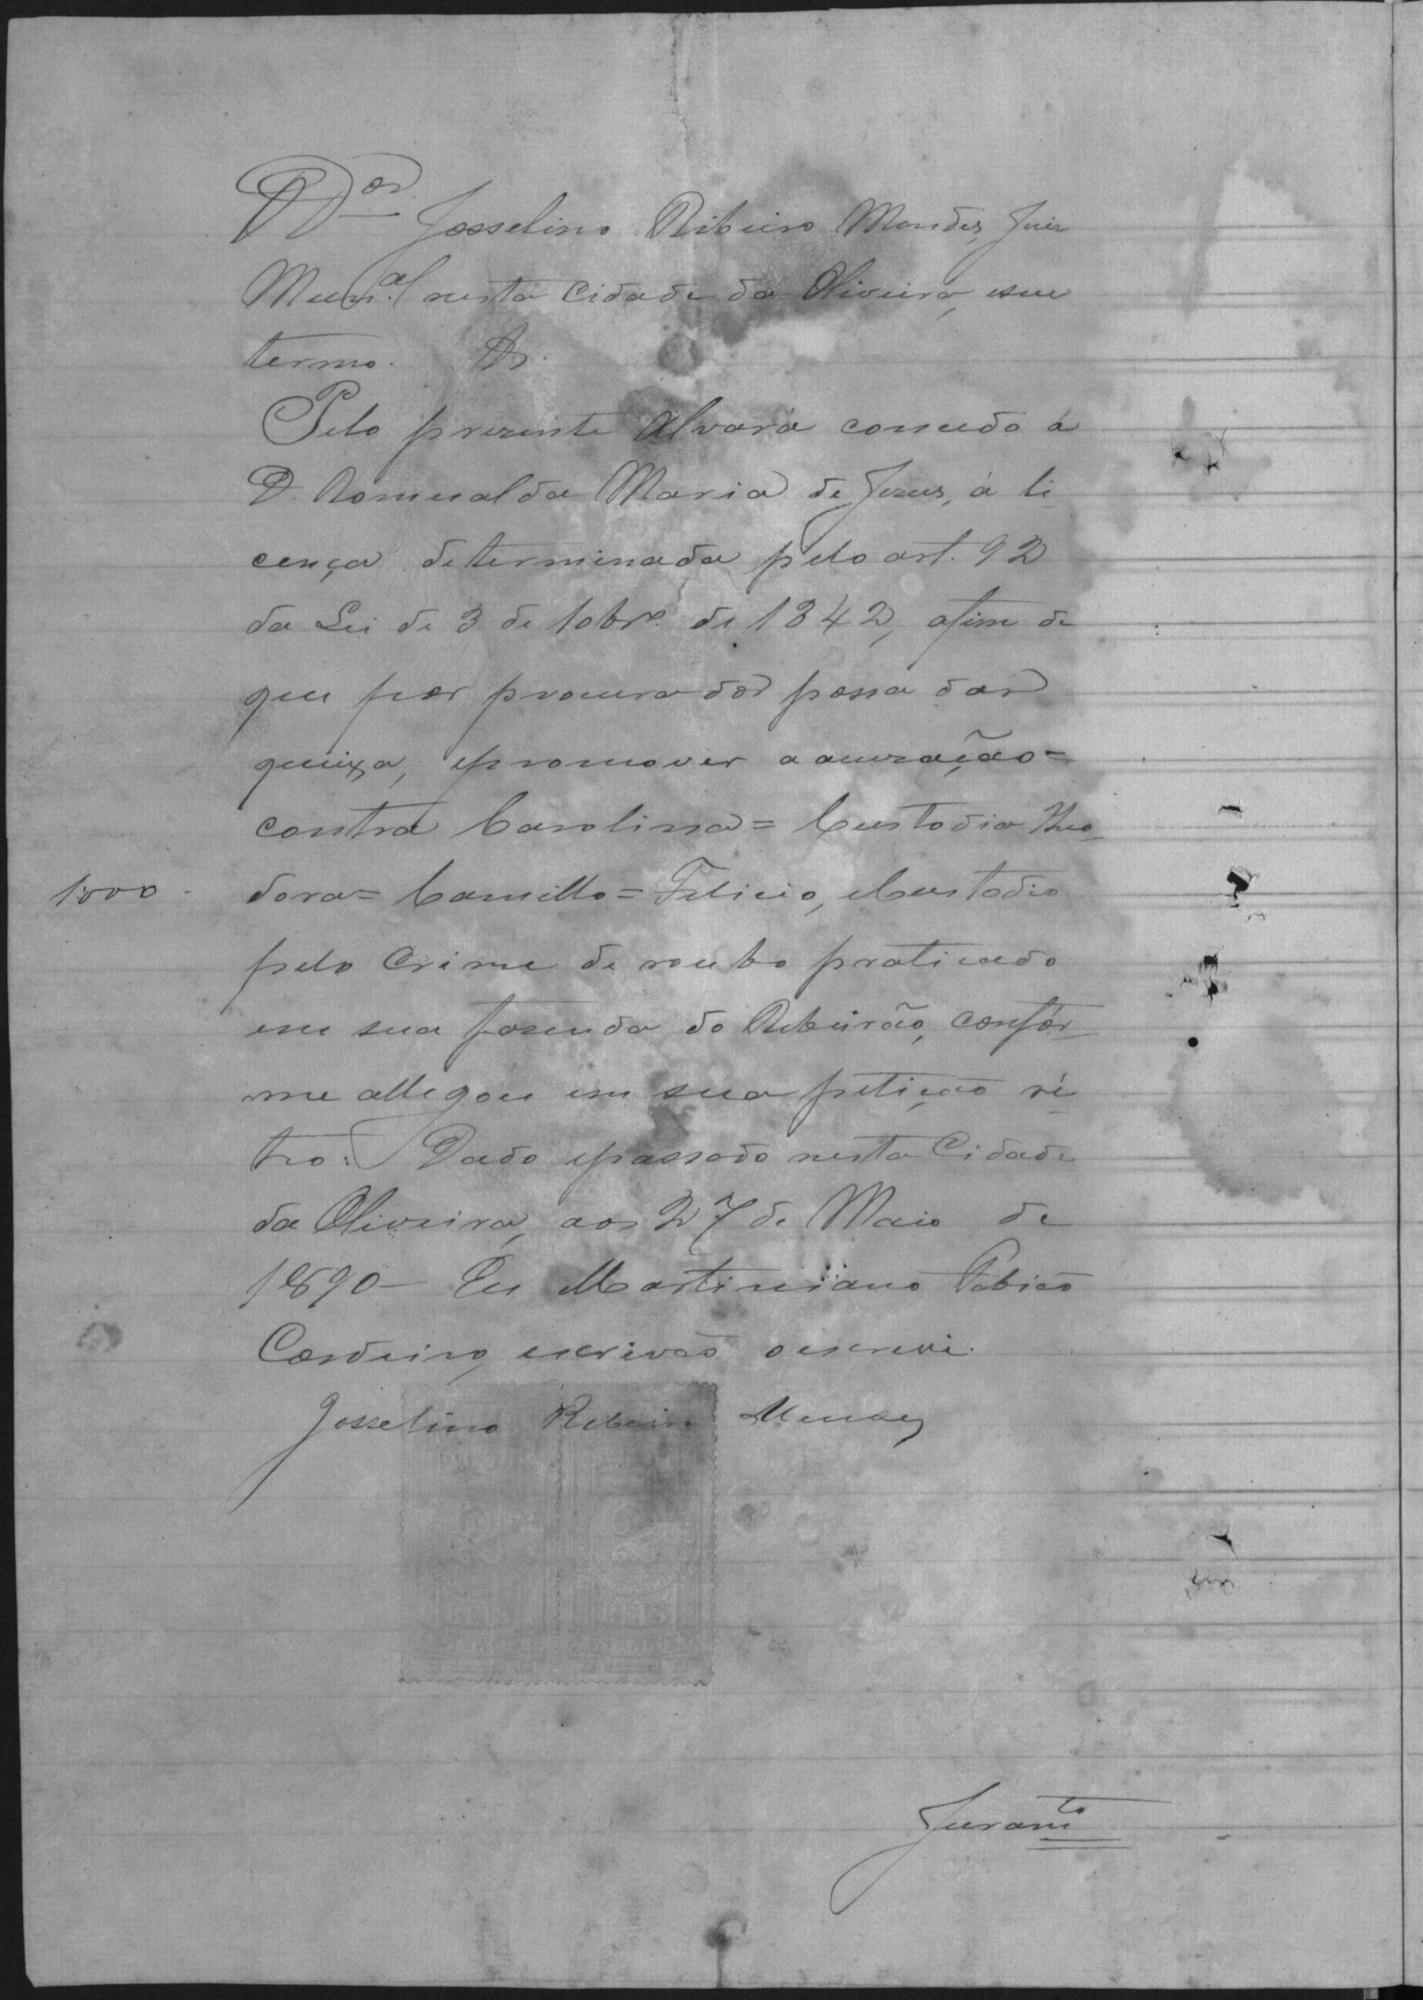 Dor Josselino Ribeiro Mendes, Juiz
Munal nesta Cidade da Oliveira, e seu
termo.
Pelo prezente Alvará concedo á
D. Romualda Maria de Jezus, á li
cença determinada pelo art. 92
da Lei de 3 de 10bro de 1842, afim de
que por procurador possa dar
queixa, e promover a acuzação=
contra Carolina= Custodia Theo
dora= Camillo= Felicio, e Custodio
1000
pelo Crime de roubo praticado
em sua fasenda do Ribeirão, confór
me allegou em sua petição ré
tro. Dado e passado nesta Cidade
da Oliveira, aos 27 de Maio de
1890 - Eu Martiniano
Cordeiro, escrivão o escrevi.
Josselino Ribeiro Mendes
Juramto